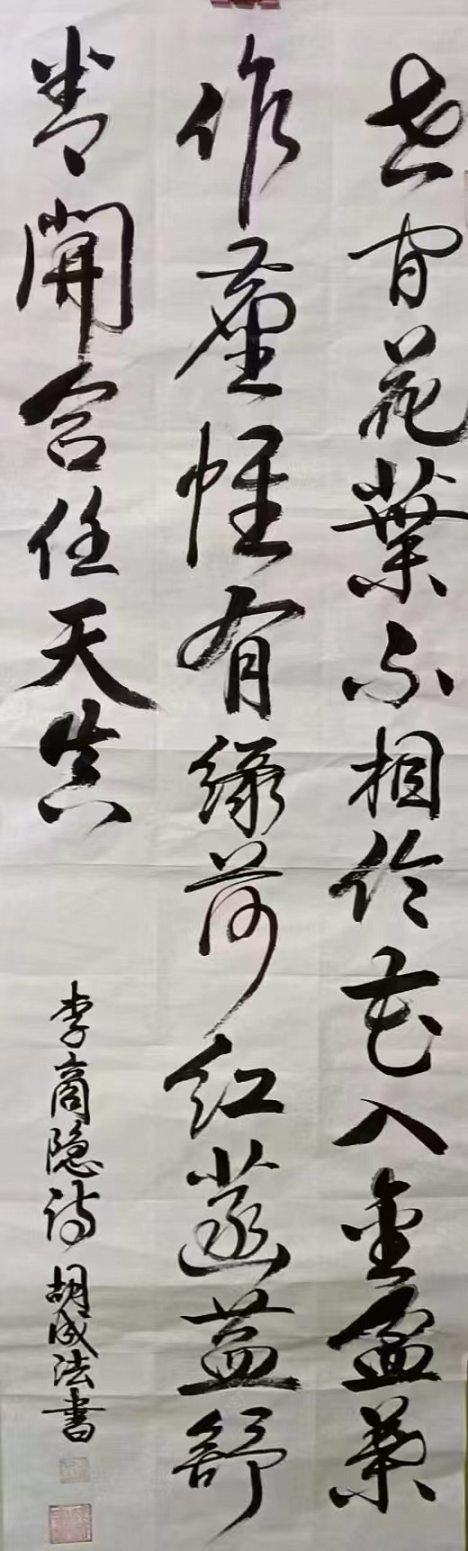 世间花葉不相伦花入金盆葉
作塵惟有緑荷红菡萏舒
卷開合任天真
李商隐诗 胡成法書